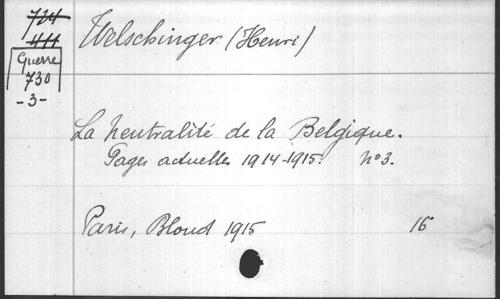 724
411
Guerre
730
-3-
Welschinger (Henri)
La neutralité de la Belgique.
Pages actuelles 1914-1915. N°3.
Paris, Bloud 1915 16°